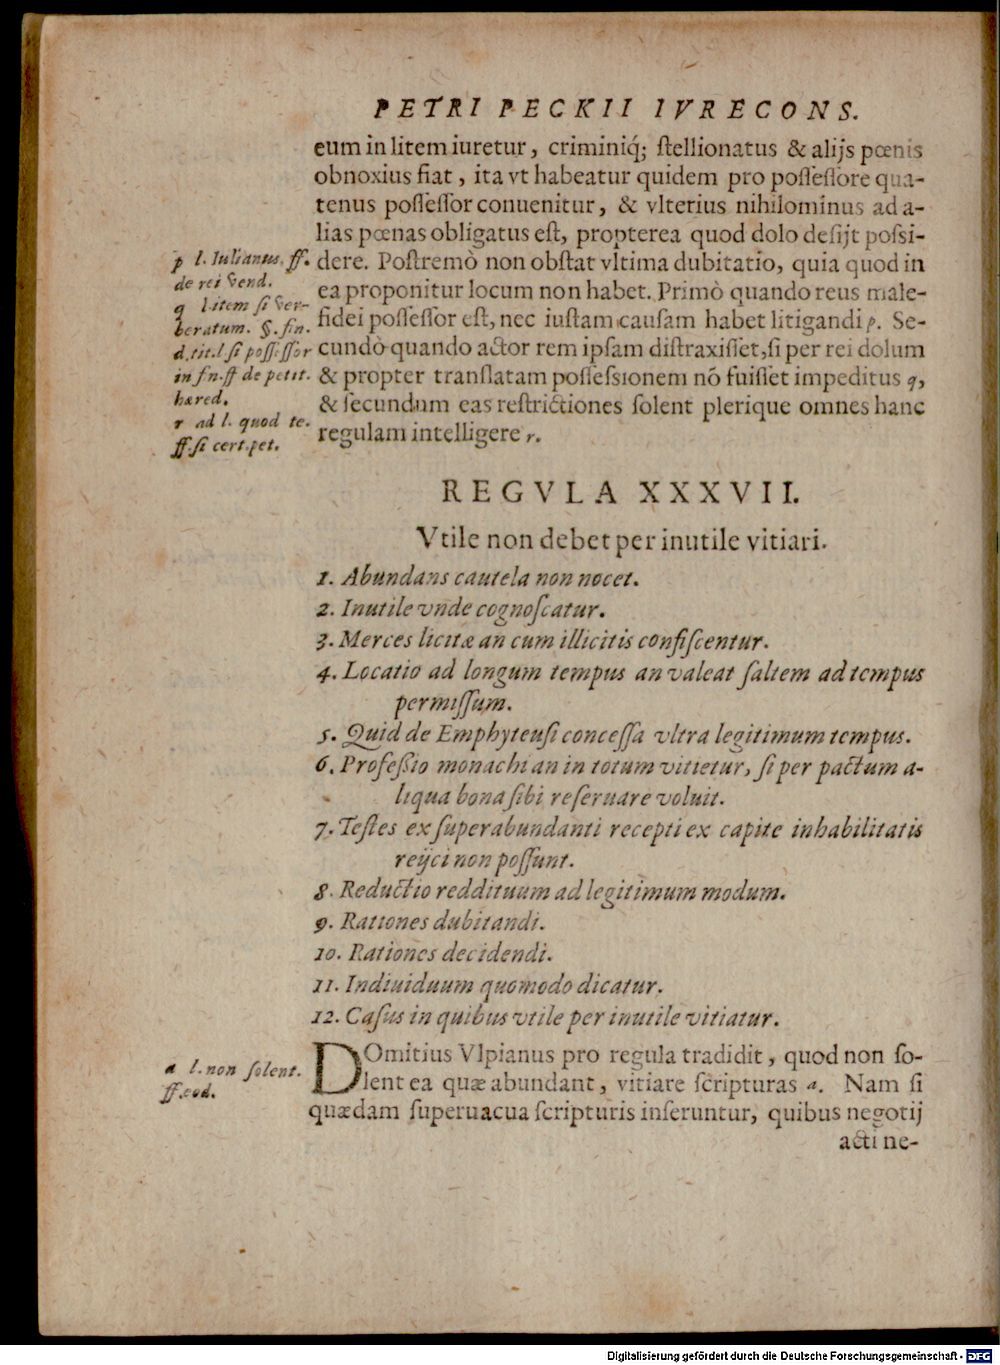 PETRI PECKII IVRECONS.
eum in litem iuretur, criminiq́; ſtellionatus & alijs pœnis
obnoxius fiat, ita vt habeatur quidem pro poſſeſſore qua-
tenus poſſeſſor conuenitur, & vlterius nihilominus ad a-
lias pœnas obligatus eſt, propterea quod dolo deſijt poſsi-
dere. Poſtremò non obſtat vltima dubitatio, quia quod in
ea proponitur locum non habet. Primò quando reus male-
fidei poſſeſſor eſt, nec iuſtam cauſam habet litigandi p. Se-
cundò quando actor rem ipſam diſtraxiſſet, ſi per rei dolum
& propter tranſlatam poſſeſsionem nō fuiſſet impeditus q,
& ſecundum eas reſtrictiones ſolent plerique omnes hanc
regulam intelligere r.
p l. Iulianus. ff.
de rei vend.
q l. item ſi ver-
beratum. §. fin.
d. tit. l ſi poſſeſſor
in fin. ff de petit.
hæred.
r ad l. quod te.
ff. ſi cert. pet.
REGVLA XXXVII.
Vtile non debet per inutile vitiari.
1. Abundans cautela non nocet.
2. Inutile vnde cognoſcatur.
3. Merces licitæ an cum illicitis confiſcentur.
4. Locatio ad longum tempus an valeat ſaltem ad tempus
permiſſum.
5. Quid de Emphyteuſi conceſſa vltra legitimum tempus.
6. Profeßio monachi an in totum vitietur, ſi per pactum a-
liqua bona ſibi reſeruare voluit.
7. Teſtes ex ſuperabundanti recepti ex capite inhabilitatis
reijci non poſſunt.
8. Reductio reddituum ad legitimum modum.
9. Rationes dubitandi.
10. Rationes decidendi.
11. Indiuiduum quomodo dicatur.
12. Caſus in quibus vtile per inutile vitiatur.
DOmitius Vlpianus pro regula tradidit, quod non ſo-
lent ea quæ abundant, vitiare ſcripturas a. Nam ſi
quædam ſuperuacua ſcripturis inſeruntur, quibus negotij
a l. non ſolent.
ff. eod.
acti ne-
Digitalisierung gefördert durch die Deutsche Forschungsgemeinschaft - DFG